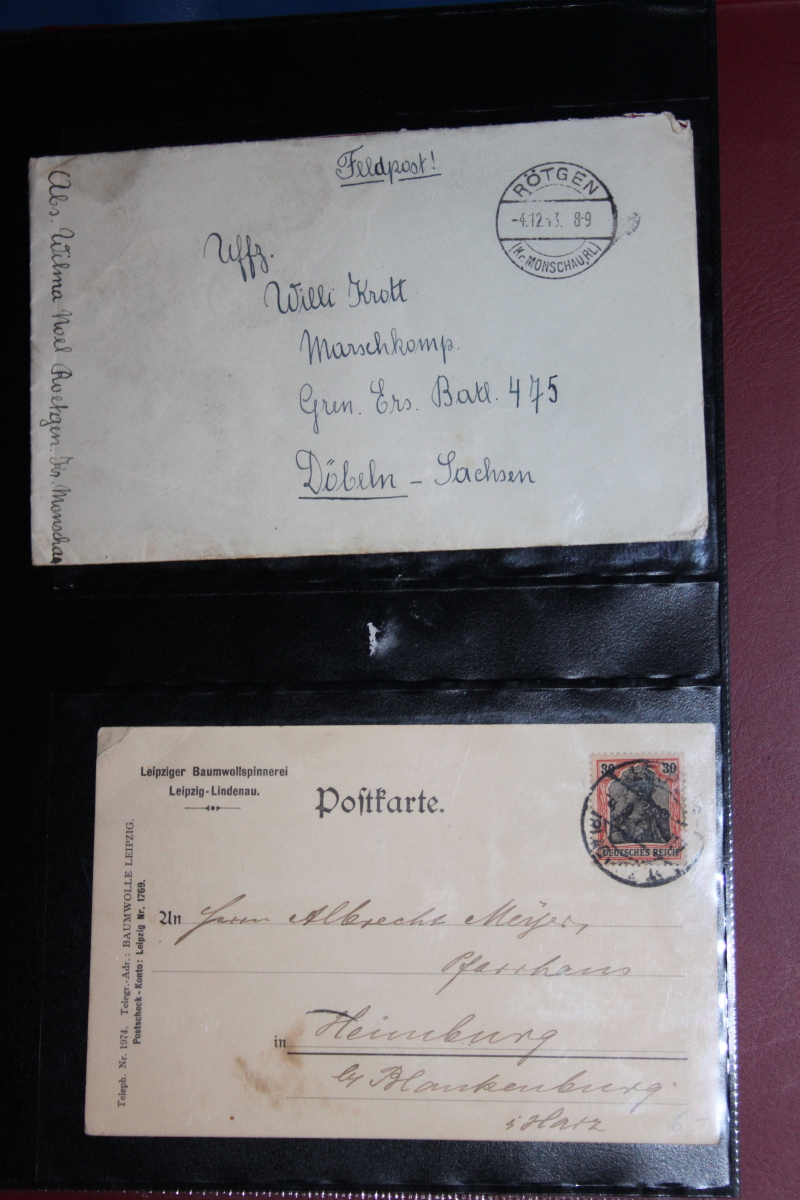 Feldpost!
RÖTGEN
-4.12.43. 8-9
(Kr. MONSCHAU, RL)
Abs. Wilma Noel Roetgen. Kr. Monschau
Uffz.
Willi Krott
Marschkomp.
Gren. Ers. Batl. 475
Döbeln - Sachsen
Leipziger Baumwollspinnerei
Leipzig-Lindenau.
Postkarte.
30 30
DEUTSCHES REICH
Teleph. Nr. 1974. Telegr.-Adr.: BAUMWOLLE LEIPZIG.
Postscheck-Konto: Leipzig Nr. 1769.
An Herrn Albrecht Meyer,
Pfarrhaus
in Heimburg
b/ Blankenburg
i Harz
6